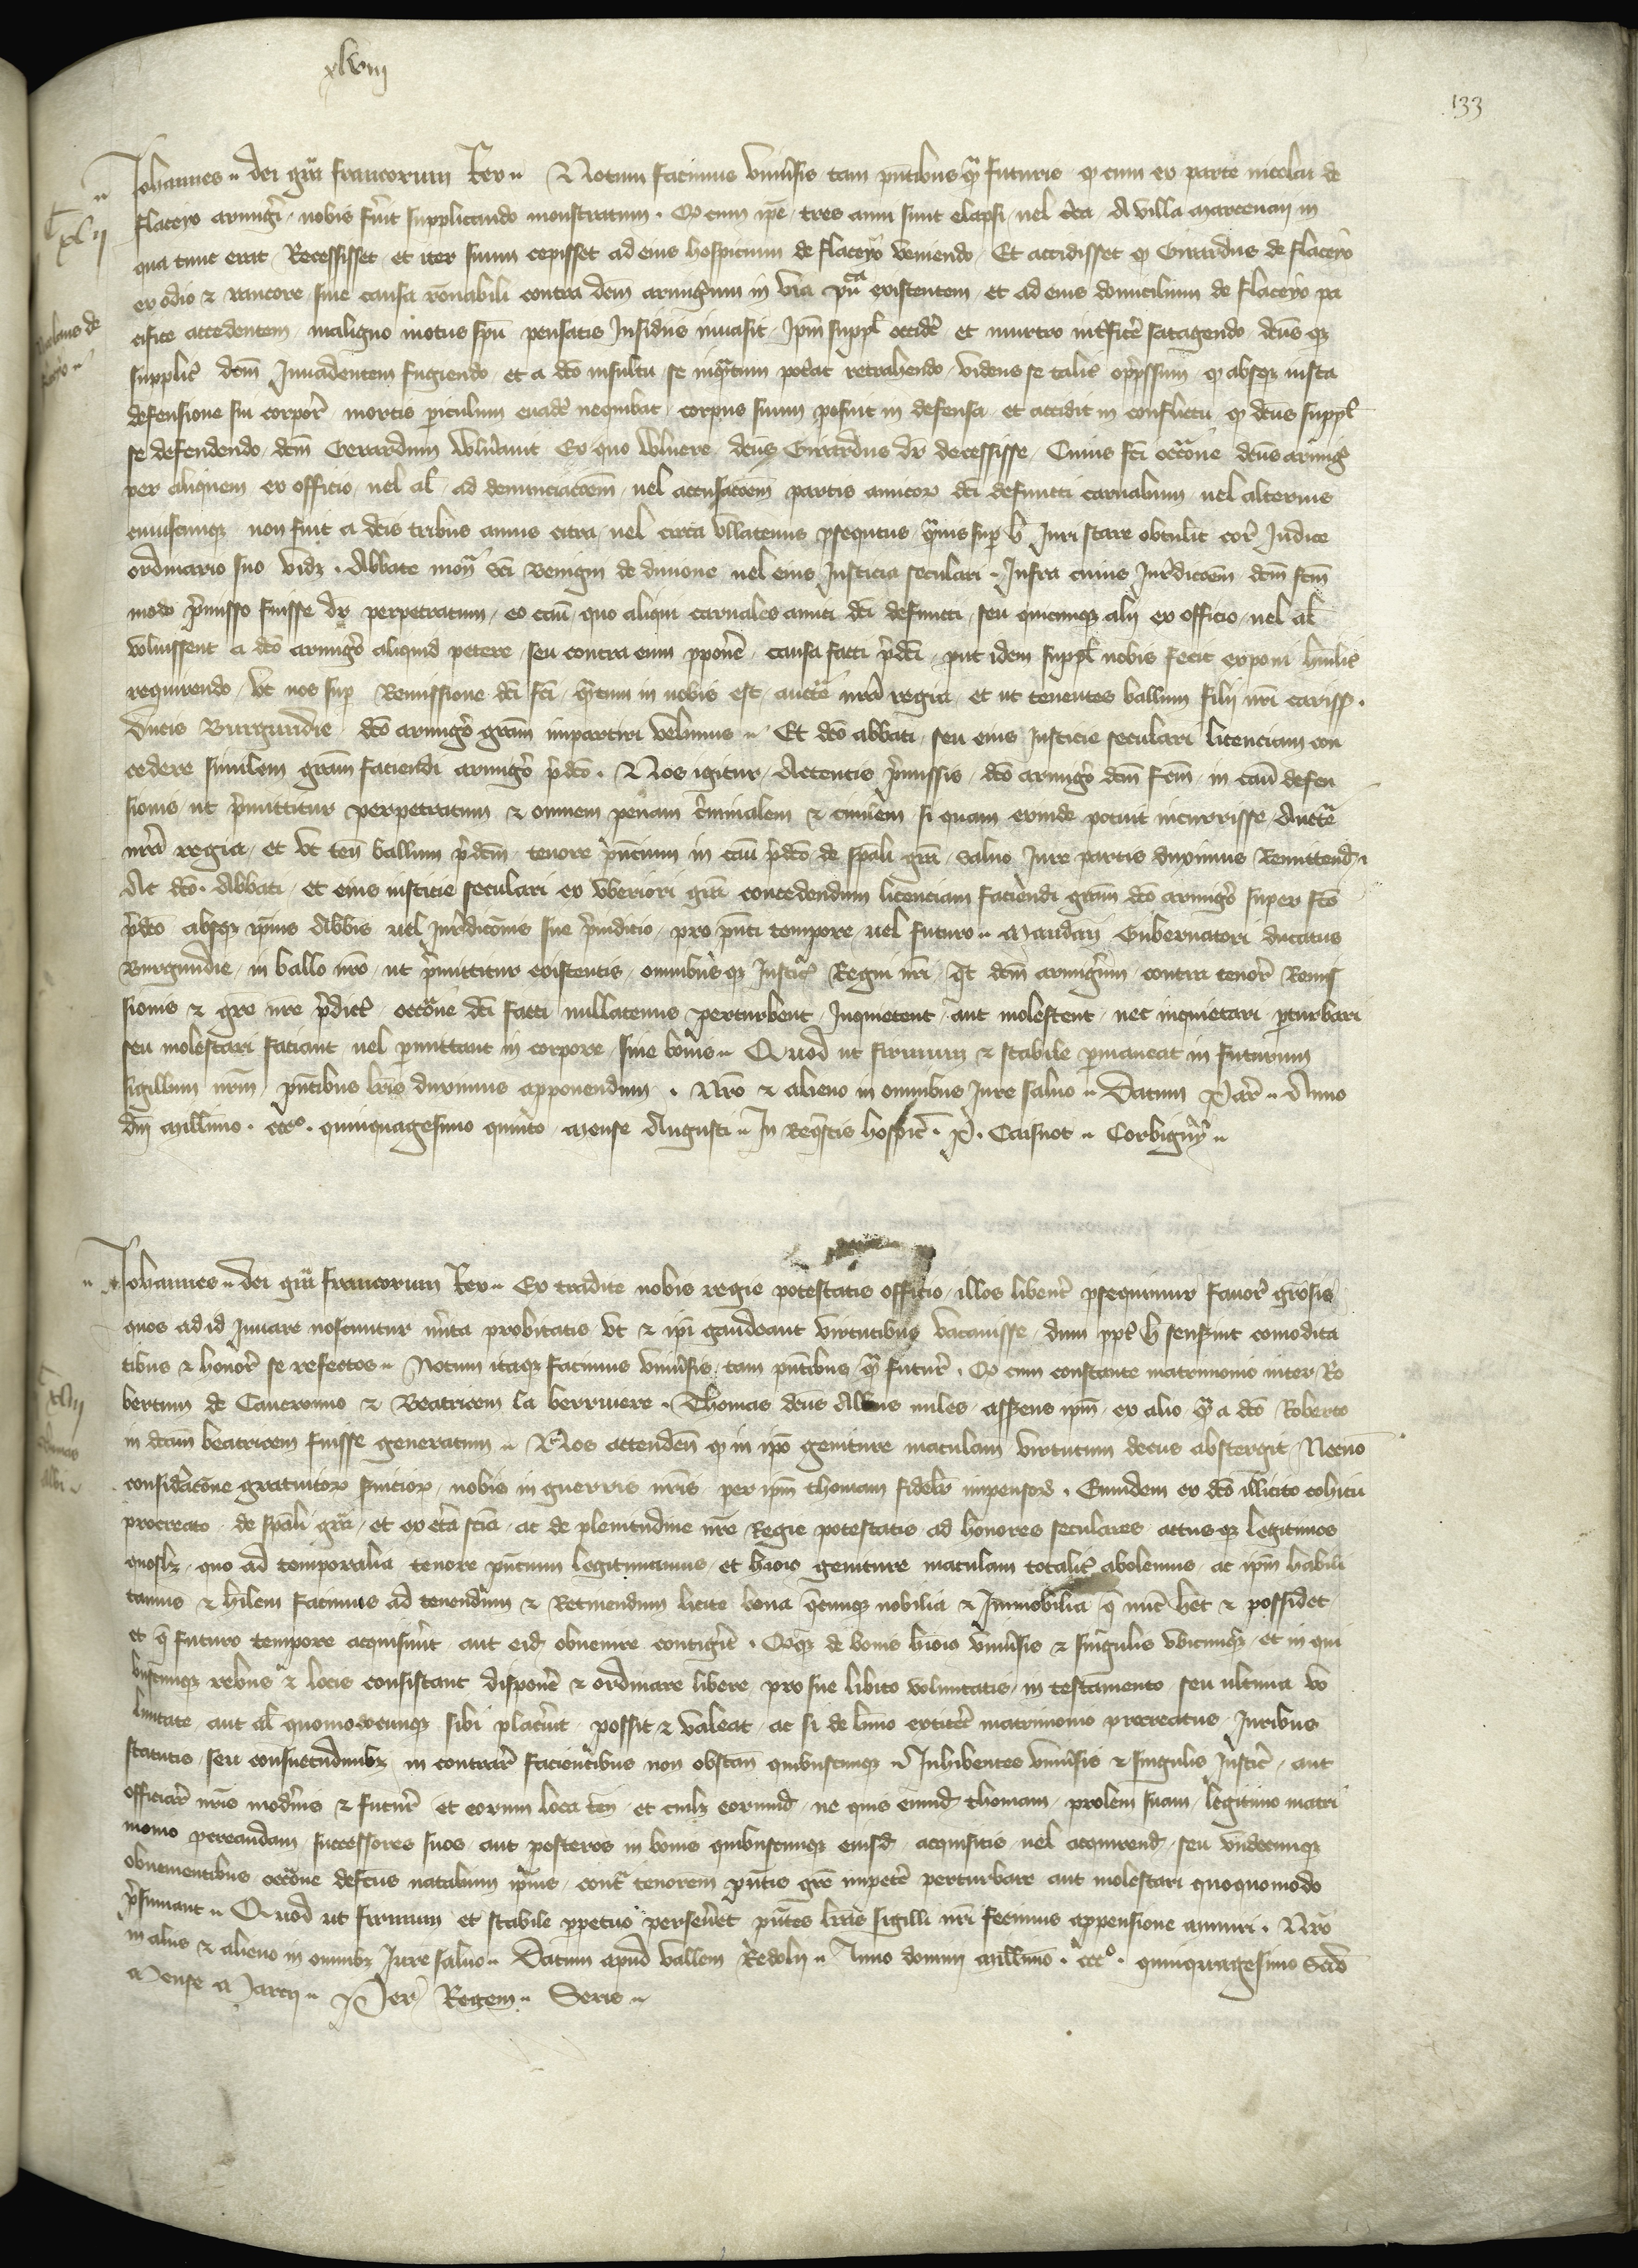 xlviii
133
Johannes dei gra francorum Rex Notum facimus universis tam pntibus qm futuris q cum ex parte nicolai de
flaceyo armigi nobis fuit supplicando monstratum Q cum ipe tres anni sunt elapsi vel circa A villa marcenay in
qua tunc erat Recessisset et iter suum cepisset ad eius hospicium de flaceyo veniendo Et accidisset q Girardus de flaceyo
ex odio z rancore sine causa ronabili contra dem armigum in via pu ca existentem et ad eius domicilium de flaceyo pa
cifice accedentem maligno motus spu pensatis Insidiis invasit Ipm suppl occide et murtro intfice satagendo deus qz
supplic dem Invadentem fugiendo et a dco insultu se inqtum poterat retrahendo videns se talit oppssum q absqz iusta
defensione sui corpor mortis piculum evade nequibat corpus suum posuit in defensa et accidit in conflictu q dcus suppl
se defendendo dcm Gerardum vulnavit Ex quo vulnere dcus Girardus dr decessisse Cuius fci occone dcus armig
per aliquem ex officio vel al ad denunciacoem vel accusacoem partis amicor dci defuncti carnalium vel alterius
cuiuscumqz non fuit a dcis tribus annis citra vel circa ullatenus psequtus qmvis sup h Juri stare obtulit cor Judice
ordinario suo vidz Abbate mon sci Benigni de divione vel eius Justicia seculari Infra cuius Jurdicoem dcm fcm
modo pmisso fuisse dr perpetratum eo casu quo aliqui carnales amici dci defuncti seu quicumqz alij ex officio vel al
voluissent a dco armigo aliquid petere seu contra eum pponer causa facti pdci put idem suppl nobis fecit exponi humilit
requirendo ut nos sup Remissione dci fci qtum in nobis est aucte nra regia et ut tenentes ballum filij nri cariss
ducis Burgundie dco armigo gram impartiri velimus Et dco abbati seu eius Justicie seculari licenciam con
cedere similem gram faciendi armigo pdco Nos igitur Attentis pmissis dco armigo dcm fcm in casu defen
sionis ut pmittitur perpetratum z omnem penam criminalem z civilem si quam exinde potuit incurrisse Aucte
nra regia et ut ten ballum pdcm tenore pncium in casu pdco de spali gra salvo Jure partis duximus Remittend
Ac dco Abbati et eius iusticie seculari ex uberiori gra concedendum licenciam faciendi gram dco armigo super fco
pdco absqz ipius Abbis vel Jurdiconis sue piudicio pro pnti tempore vel futuro Mandan Gubernatori ducatus
Burgundie in ballo nro ut pmittitur existentis omnibus qz Justic Regni nri Qt dcm armigum contra tenor Remis
sionis z gre nre pdict occone dci facti nullatenus perturbent Inquietent aut molestent nec inquietari pturbari
seu molestari faciant vel pmittant in corpore sive bonis Quod ut firmum z stabile pmaneat in futurum
sigillum nrm pntibus lris duximus apponendum Nro z alieno in omnibus Jure salvo Datum Par Anno
dni millimo ccco quinquagesimo quinto mense Augusti In Reqstis hospic P. Caisnot Corbigny
Johannes dei gra francorum Rex Ex tradite nobis regie potestatis officio illos libent psequimur favor grosis
quos ad id Juvare noscuntur mita probitatis Vt z ipi gaudeant virtutibus vacavisse dum ppt h senserint comodita
tibus z honor se refectos Notum itaqz facimus universis tam pntibus qm futur Q cum constante matrimonio inter Ro
bertum de Caveronno z Beatricem la berruiere Thomas dcus Albus miles asserens ipm ex alio qm a dco Roberto
in dcam beatricem fuisse generatum Nos attenden q in ipo geniture maculam virtutum decus abstergit Necno
consideracone gratuitor servicior nobis in guerris nris per ipm thomam fidelr impensor Eumdem ex dco illicito cohitu
procreato de spali gra et ex cta scia ac de plenitudine nre Regie potestatis ad honores seculares actus qz legitimos
quoslz quo ad temporalia tenore pncium legitimamus et huiois geniture maculam totalit abolemus ac ipm habili
tamus z hilem facimus ad tenendum z Retinendum licite bona qcumqz nobilia z Immobilia q nunc het z possidet
et q futuro tempore acquisiverit aut eid obvenire contigit Qqz de bonis huiois universis z singulis ubicumqz et in qui
buscumqz rebus z locis consistant dispone z ordinare libere pro sue libito voluntatis in testamento seu ultima vo
luntate aut al quomodocunqz sibi placuit possit z valeat ac si de limo extitet matrimonio procreatus Juribus
statutis seu consuetudinibz in contrar facientibus non obstan quibuscumqz Inhibentes universis z singulis Justic aut
officiar nris modnis z futur et eorum loca ten et cuilz eorumd ne quis eumd thomam prolem suam legitimo matri
monio procreandam successores suos aut posteros in bonis quibuscumqz eiusd acquisitis vel acquirend seu undecumqz
obvenientibus occone defcus natalium ipius cont tenorem pntis gre impete perturbare aut molestari quoquomodo
psumant Quod ut firmum et stabile ppetuo perseveret pntes lras sigilli nri fecimus appensione muniri Nro
in aliis z alieno in omnibz Jure salvo Datum apud vallem Redolij Anno domini millimo ccco quinquagesimo scdo
Mense Marcij Per Regem Seris